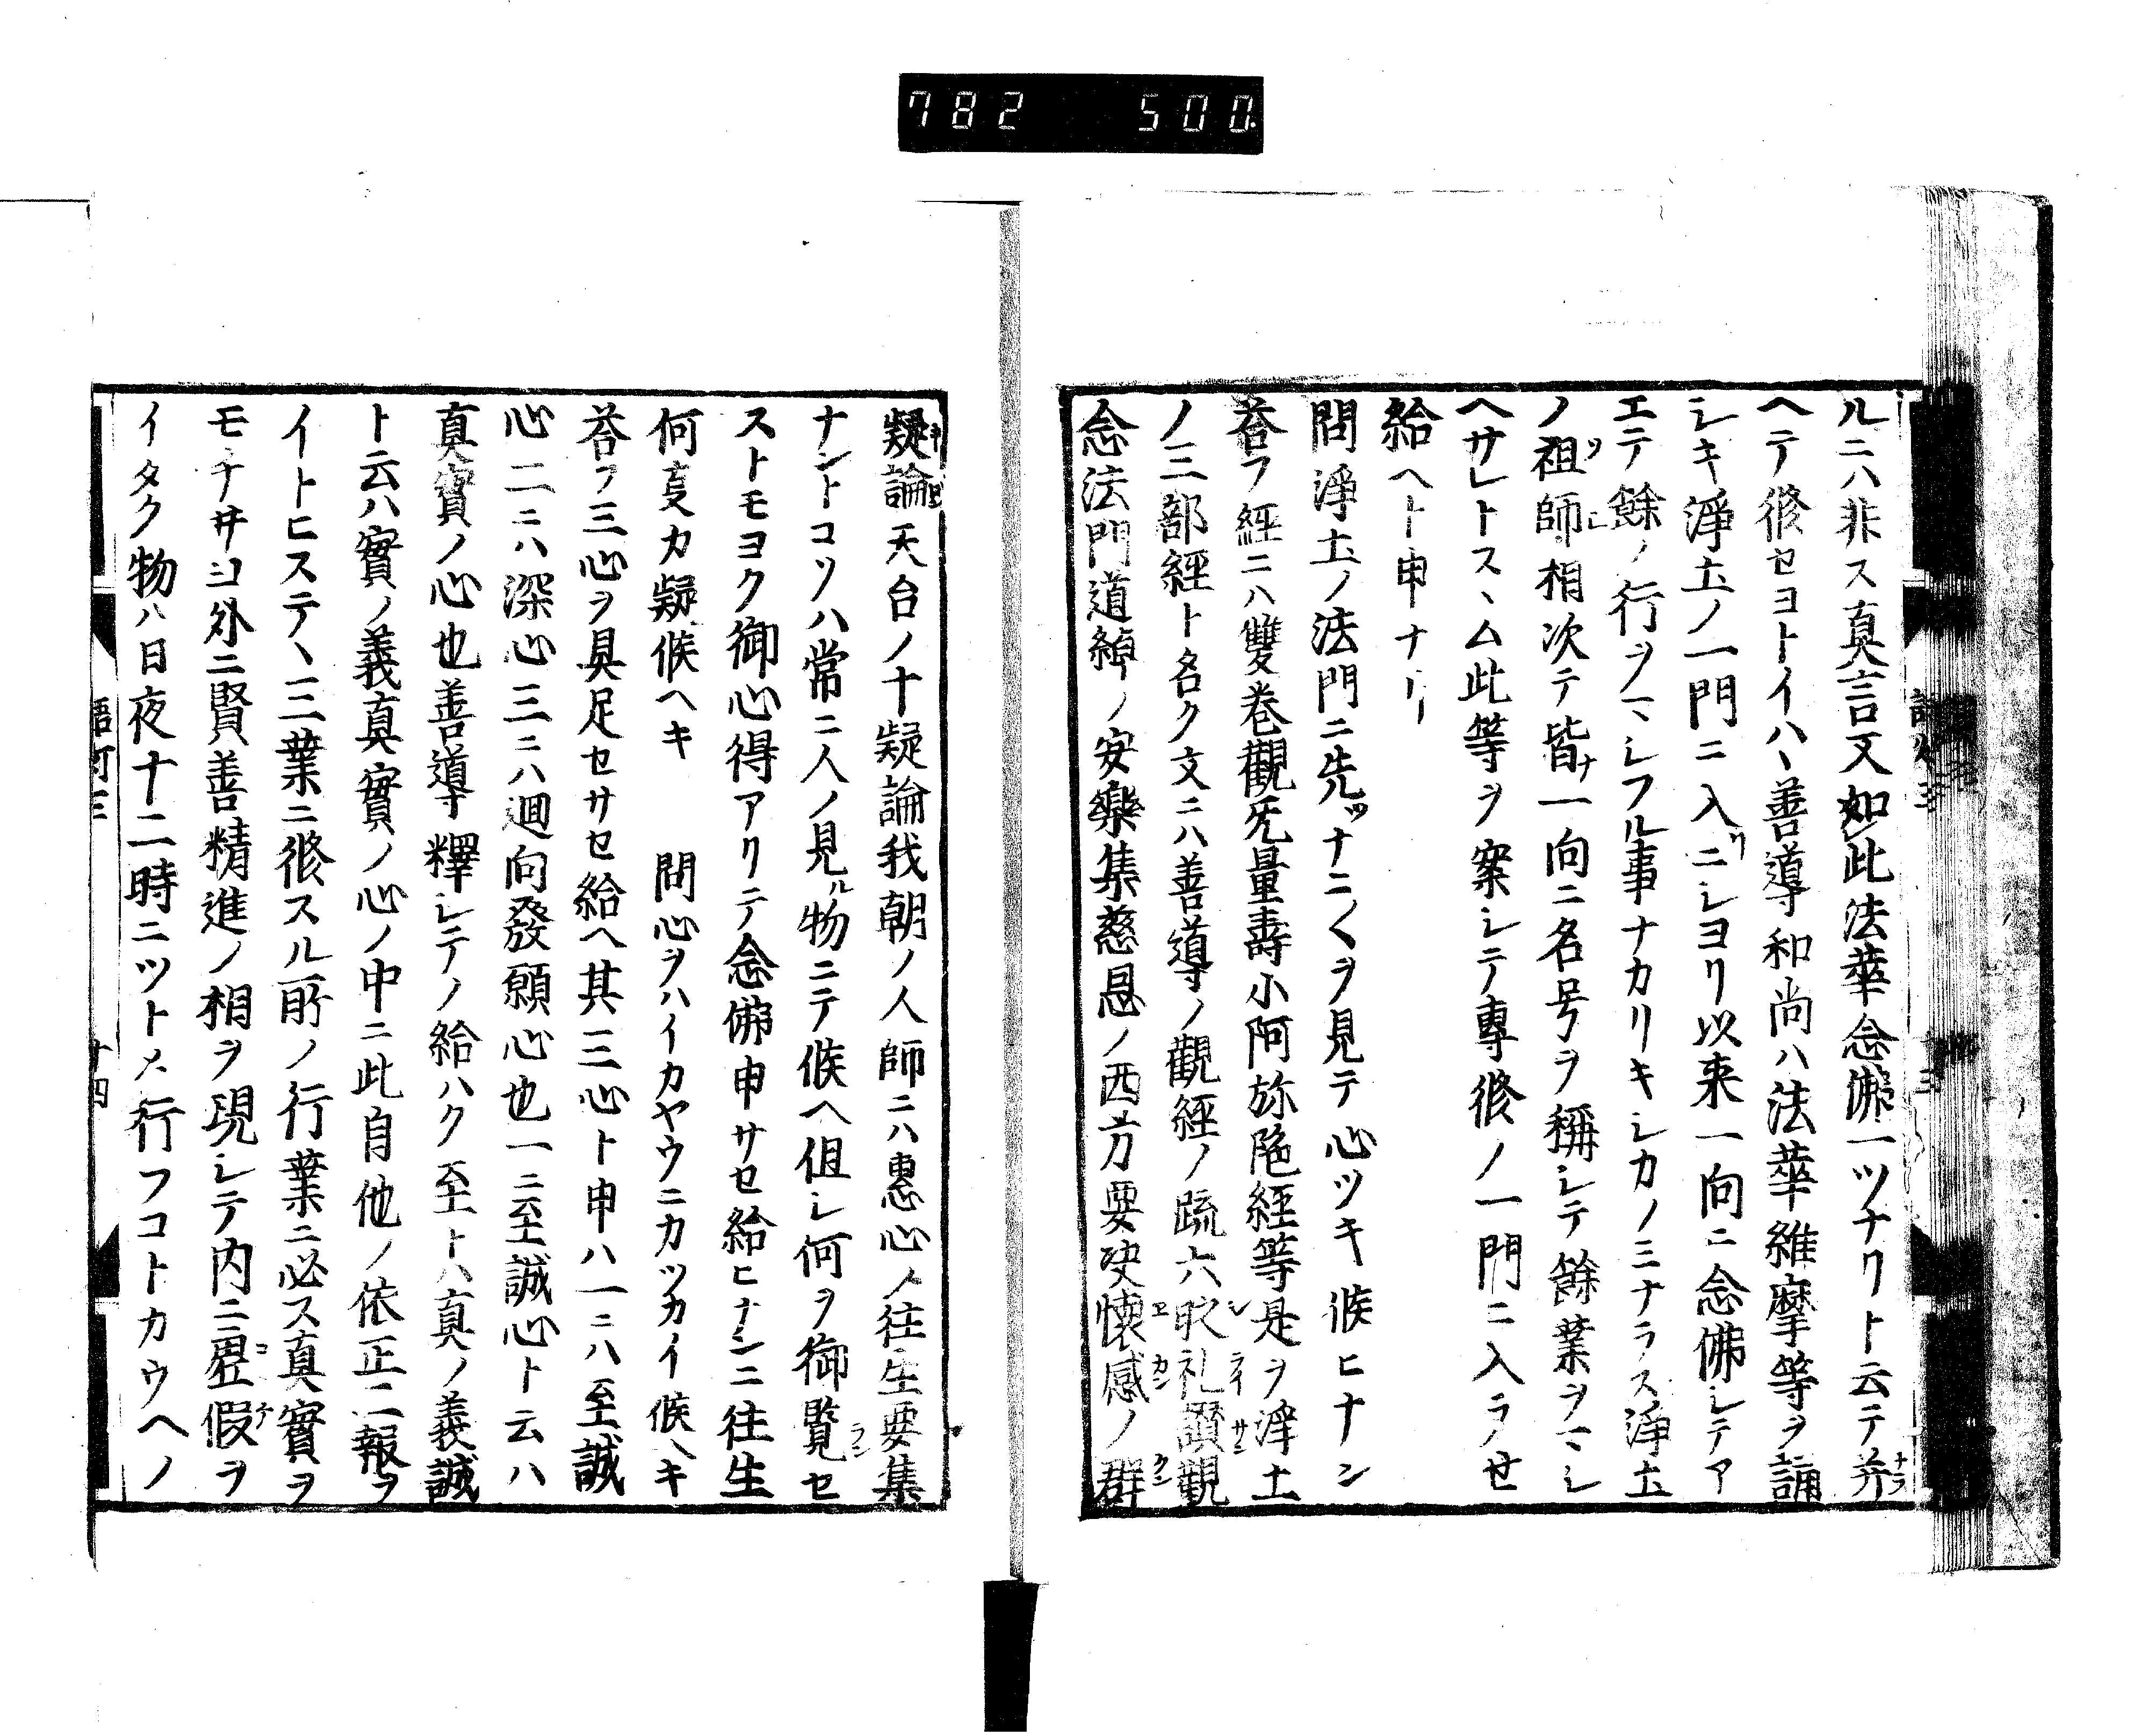 782 500.
ルニハ非ス真言又如此法華念佛一ツナクト云テ并
ヘテ修セヨトイハヽ善導和尚ハ法華維摩等ヲ誦
シキ淨土ノ一門ニ入ニシヨリ以来一向ニ念佛シテア
エテ餘ノ行ヲマシフル事ナカリキシカノミナラス淨土
ノ祖師相次テ皆一向ニ名号ヲ稱シテ餘業ヲマシ
ヘサレトスヽム此等ヲ案シテ專修ノ一門ニ入ラセ
給ヘト申ナリ
問淨土ノ法門ニ先ツナニ〱ヲ見テ心ツキ候ヒナン
荅フ經ニハ雙巻觀无量壽小阿弥陁経等是ヲ淨土
ノ三部経ト名ク文ニハ善導ノ觀経ノ疏六時礼讃觀
念法門道綽ノ安樂集慈恩ノ西方要决懷感ノ群
疑論天台ノ十疑論我朝ノ人師ニハ惠心ノ往生要集
ナントコソハ常ニ人ノ見ル物ニテ候ヘ但シ何ヲ御覧セ
ストモヨク御心得アリテ念佛申サセ給ヒナンニ往生
何亊カ疑候ヘキ 問心ヲハイカヤウニカツカイ候ヘキ
荅フ三心ヲ具足セサセ給ヘ其三心ト申ハ一ニハ至誠
心二ニハ深心三ニハ迴向發願心也一ニ至誠心ト云ハ
真實ノ心也善導釋シテノ給ハク至トハ真ノ義誠
ト云ハ實ノ義真實ノ心ノ中ニ此自他ノ依正二報ヲ
イトヒステヽ三業ニ修スル所ノ行業ニ必ス真實ヲ
モチヰヨ外ニ賢善精進ノ相ヲ現シテ内ニ虚假ヲ
イタク物ハ日夜十二時ニツトメ行フコトカウヘノ
語灯三 廿四